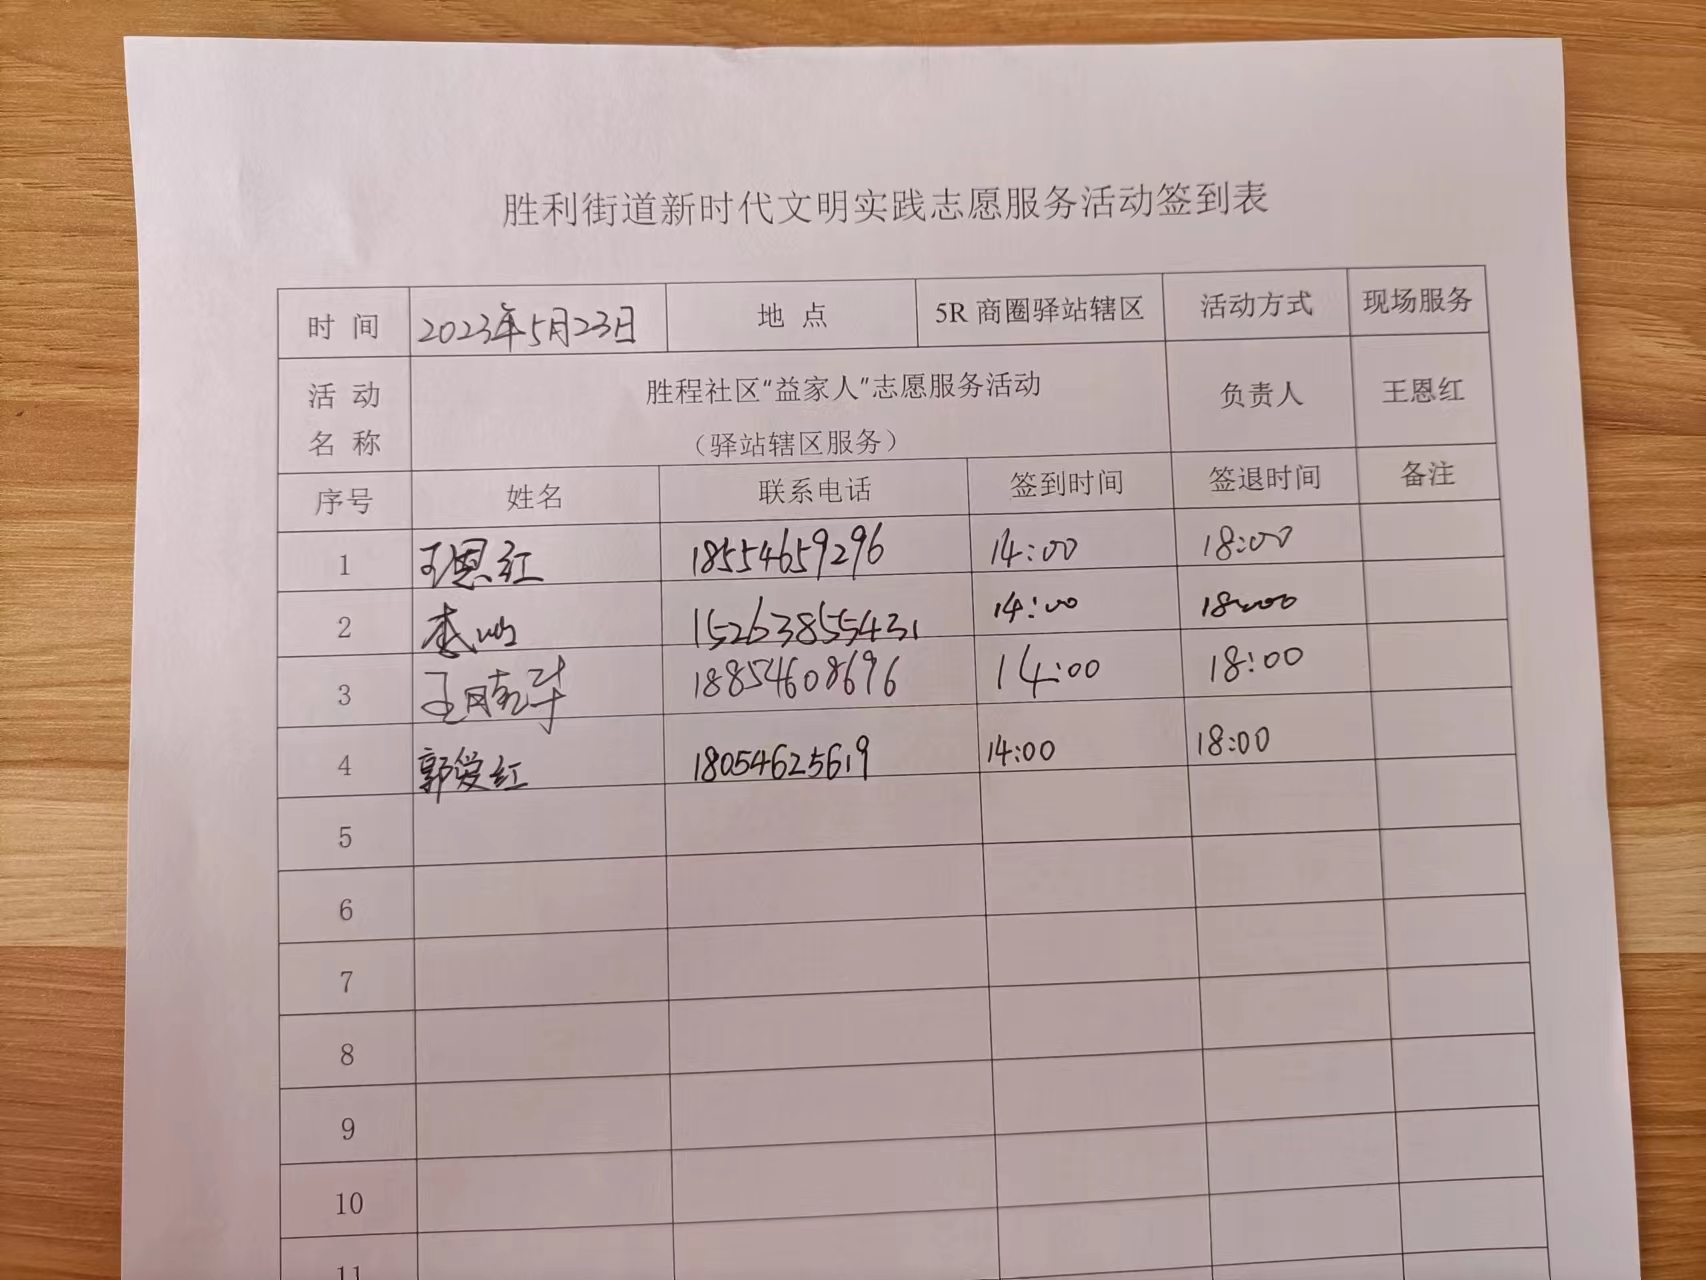 胜利街道新时代文明实践志愿服务活动签到表
时间 2023年5月23日 地点 5R商圈驿站辖区 活动方式 现场服务
活动名称 胜程社区“益家人”志愿服务活动 负责人 王恩红
（驿站辖区服务）
序号 姓名 联系电话 签到时间 签退时间 备注
1 王恩红 18554659296 14:00 18:00
2 李 15263855431 14:00 18:00
3 王 18854608696 14:00 18:00
4 郭爱红 18054625619 14:00 18:00
5
6
7
8
9
10
11